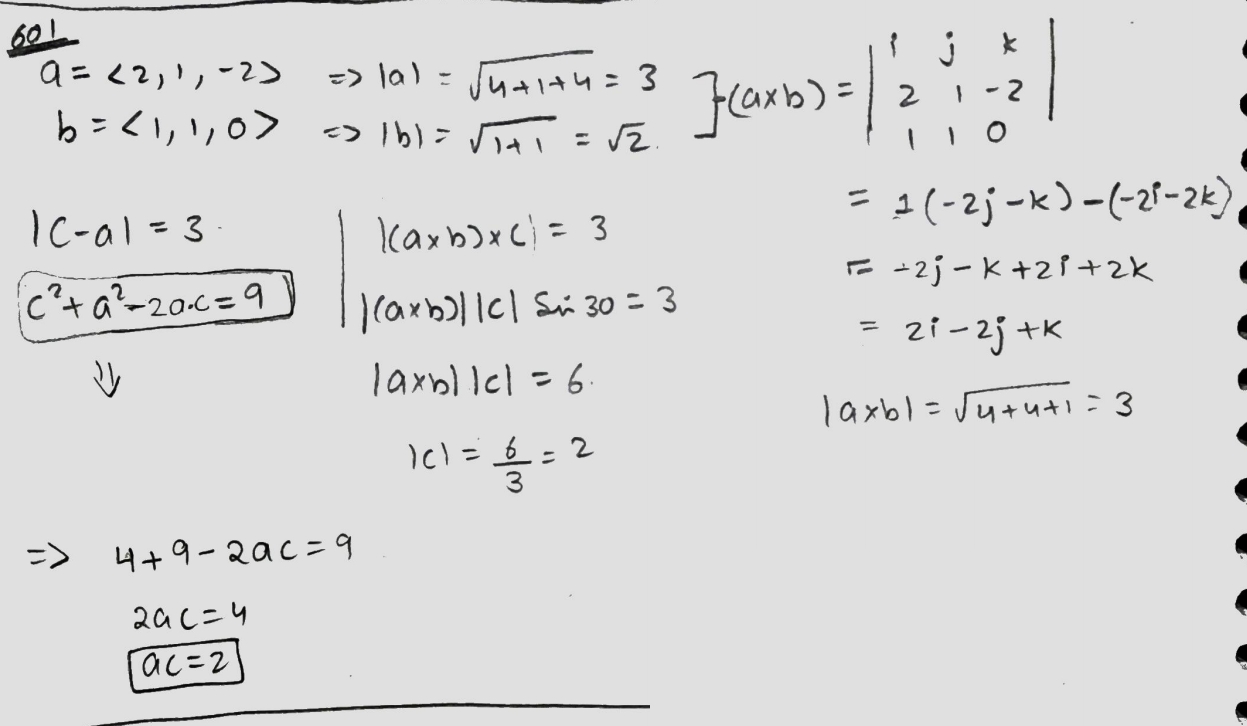 601
a = <2, 1, -2> => |a| = √4+1+4 = 3
b = <1, 1, 0> => |b| = √1+1 = √2.
}(a×b) = | i j k
2 1 -2
1 1 0 |
= 1(-2j-k)-(-2i-2k)
= -2j-k+2i+2k
= 2i-2j+k
|a×b| = √4+4+1 = 3
|c-a| = 3.
c²+a²-2a.c=9
⇓
|(a×b)×c| = 3
|(a×b)||c| Sin 30 = 3
|a×b||c| = 6.
|c| = 6/3 = 2
=> 4+9-2ac=9
2ac=4
ac=2